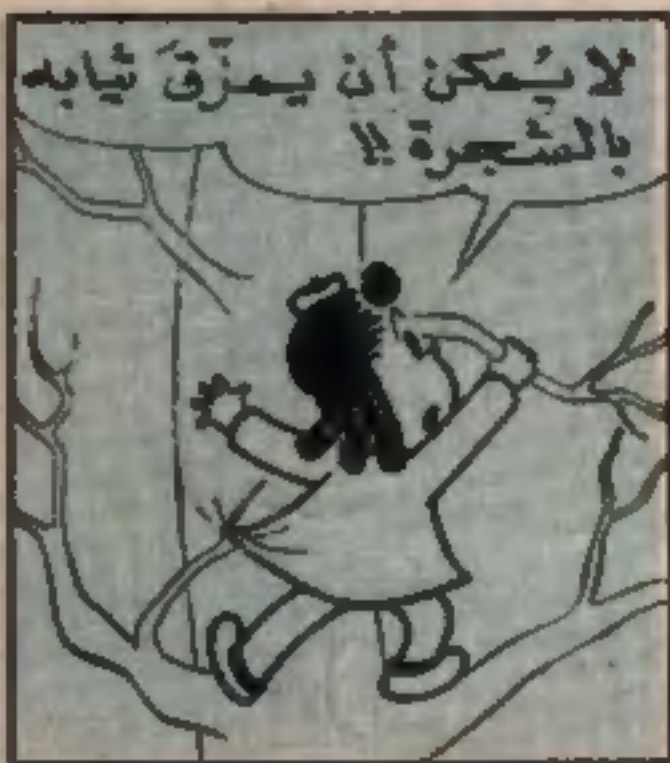 لا يُمكن أن يمزّقَ ثيابه
بالشّجرة !!